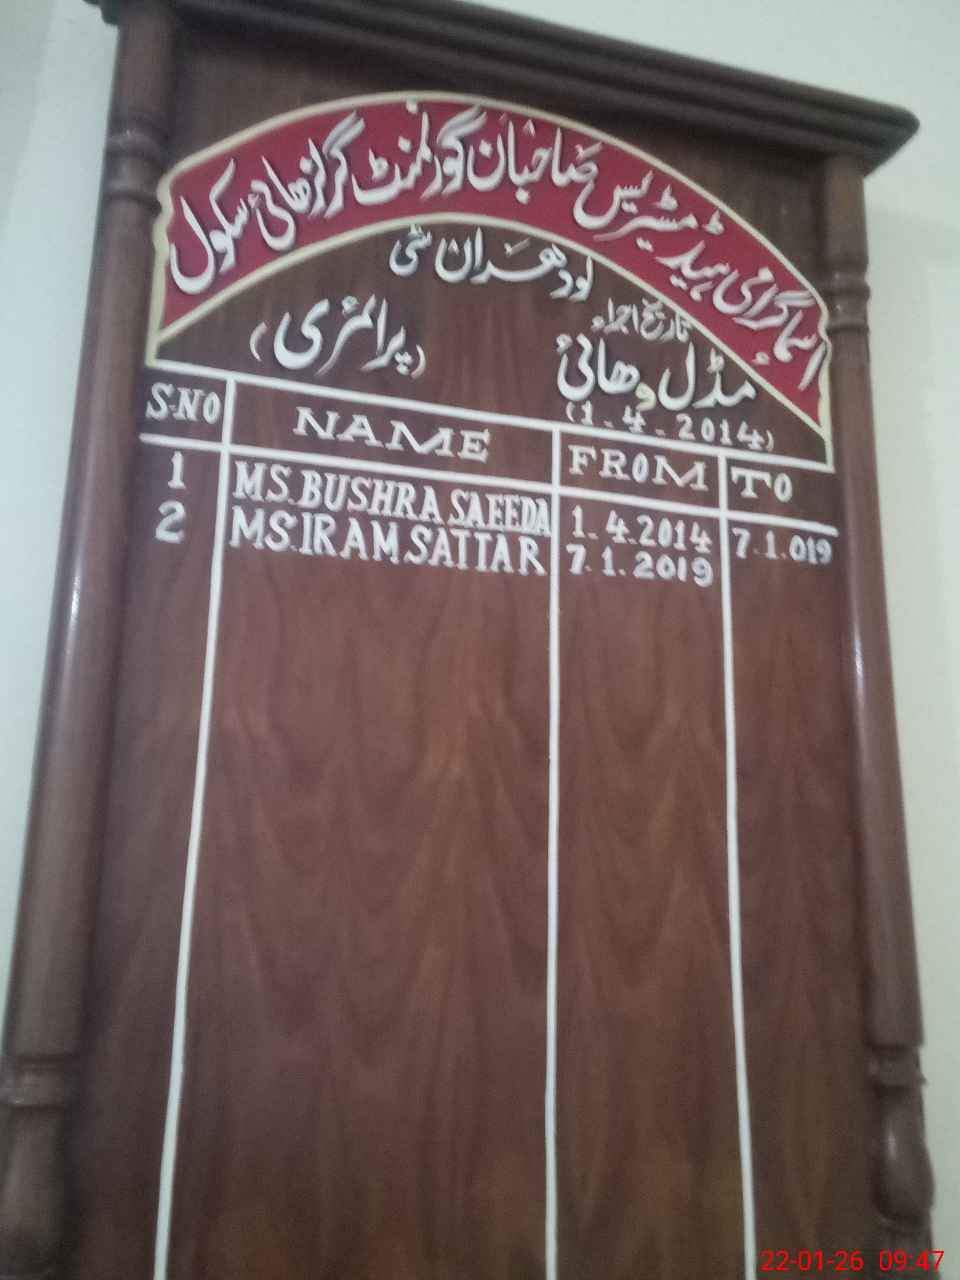 اسماء گرامی ہیڈ مسٹریس صاحبان گورنمنٹ گرلز ھائی سکول
لودھراں سٹی
تاریخ اجراء
(پرائمری)
مڈل و ھائی
(1-4-2014)
S.NO NAME FROM TO
1 MS.BUSHRA SAEEDA 1.4.2014 7.1.019
2 MS.IRAM SATTAR 7.1.2019
22-01-26 09:47